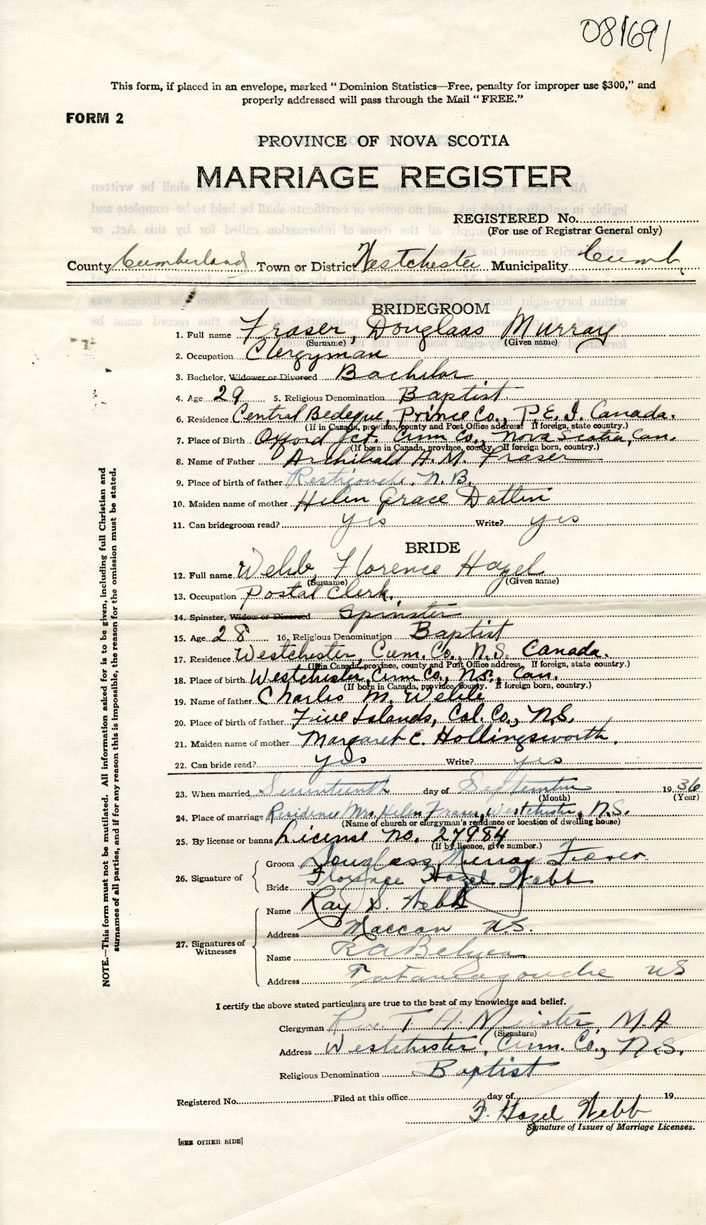 081691
This form, if placed in an envelope, marked "Dominion Statistics—Free, penalty for improper use $300," and
properly addressed will pass through the Mail "FREE."
FORM 2
PROVINCE OF NOVA SCOTIA
MARRIAGE REGISTER
REGISTERED No.
(For use of Registrar General only)
County Cumberland Town or District Westchester Municipality Cumb.
BRIDEGROOM
1. Full name Fraser, Douglass Murray
(Surname) (Given name)
2. Occupation Clergyman
3. Bachelor, Widower or Divorced Bachelor
4. Age 29 5. Religious Denomination Baptist
6. Residence Central Bedeque, Prince Co., P.E.I. Canada.
(If in Canada, province, county and Post Office address. If foreign, state country.)
7. Place of Birth Oxford Jct. Cum Co., Nova Scotia, Can.
(If born in Canada, province, county. If foreign born, country.)
8. Name of Father Archibald H. M. Fraser
9. Place of birth of father Restigouche, N.B.
10. Maiden name of mother Helen Grace
11. Can bridegroom read? yes Write? yes
BRIDE
12. Full name Webb, Florence Hazel
(Surname) (Given name)
13. Occupation Postal Clerk.
14. Spinster, Widow or Divorced Spinster
15. Age 28 16. Religious Denomination Baptist
17. Residence Westchester, Cum. Co., N.S. Canada.
(If in Canada, province, county and Post Office address. If foreign, state country.)
18. Place of birth Westchester, Cum Co., N.S., Can.
(If born in Canada, province, county. If foreign born, country.)
19. Name of father Charles M. Webb
20. Place of birth of father Five Islands, Col. Co., N.S.
21. Maiden name of mother Margaret E. Hollingsworth.
22. Can bride read? yes Write? yes
23. When married Seventeenth day of September 1936
(Month) (Year)
24. Place of marriage Residence Mrs. Helen Fraser, Westchester, N.S.
(Name of church or clergyman's residence or location of dwelling house)
25. By license or banns License no. 27984
(If by licence, give number.)
26. Signature of
Groom Douglass Murray Fraser
Bride Florence Hazel Webb
27. Signatures of Witnesses
Name Ray S. Webb
Address Maccan N.S.
Name R A Belyea
Address Tatamagouche NS
I certify the above stated particulars are true to the best of my knowledge and belief.
Clergyman Rev. T. H. M.A
(Signature)
Address Westchester, Cum. Co., N.S.
Religious Denomination Baptist
Registered No. Filed at this office day of 19
F. Hazel Webb
Signature of Issuer of Marriage Licenses.
[SEE OTHER SIDE]
NOTE.—This form must not be mutilated. All information asked for is to be given, including full Christian and
surnames of all parties, and if for any reason this is impossible, the reason for the omission must be stated.